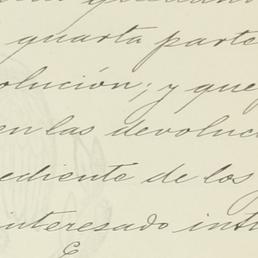 quarta parte
olución; y que
en las devoluc
ediente de los
interesado inst
E